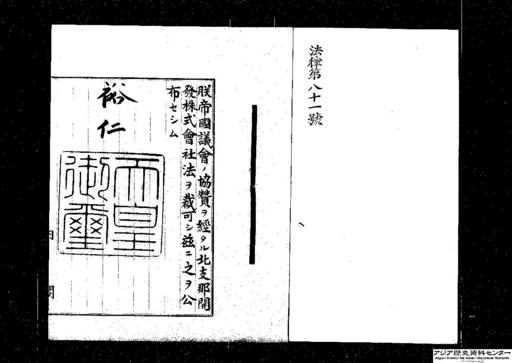 法律第八十一號
朕帝國議會ノ協贊ヲ經タル北支那開
發株式會社法ヲ裁可シ茲ニ之ヲ公
布セシム
裕仁
天皇
御璽
アジア歴史資料センター
Japan Center for Asian Historical Records